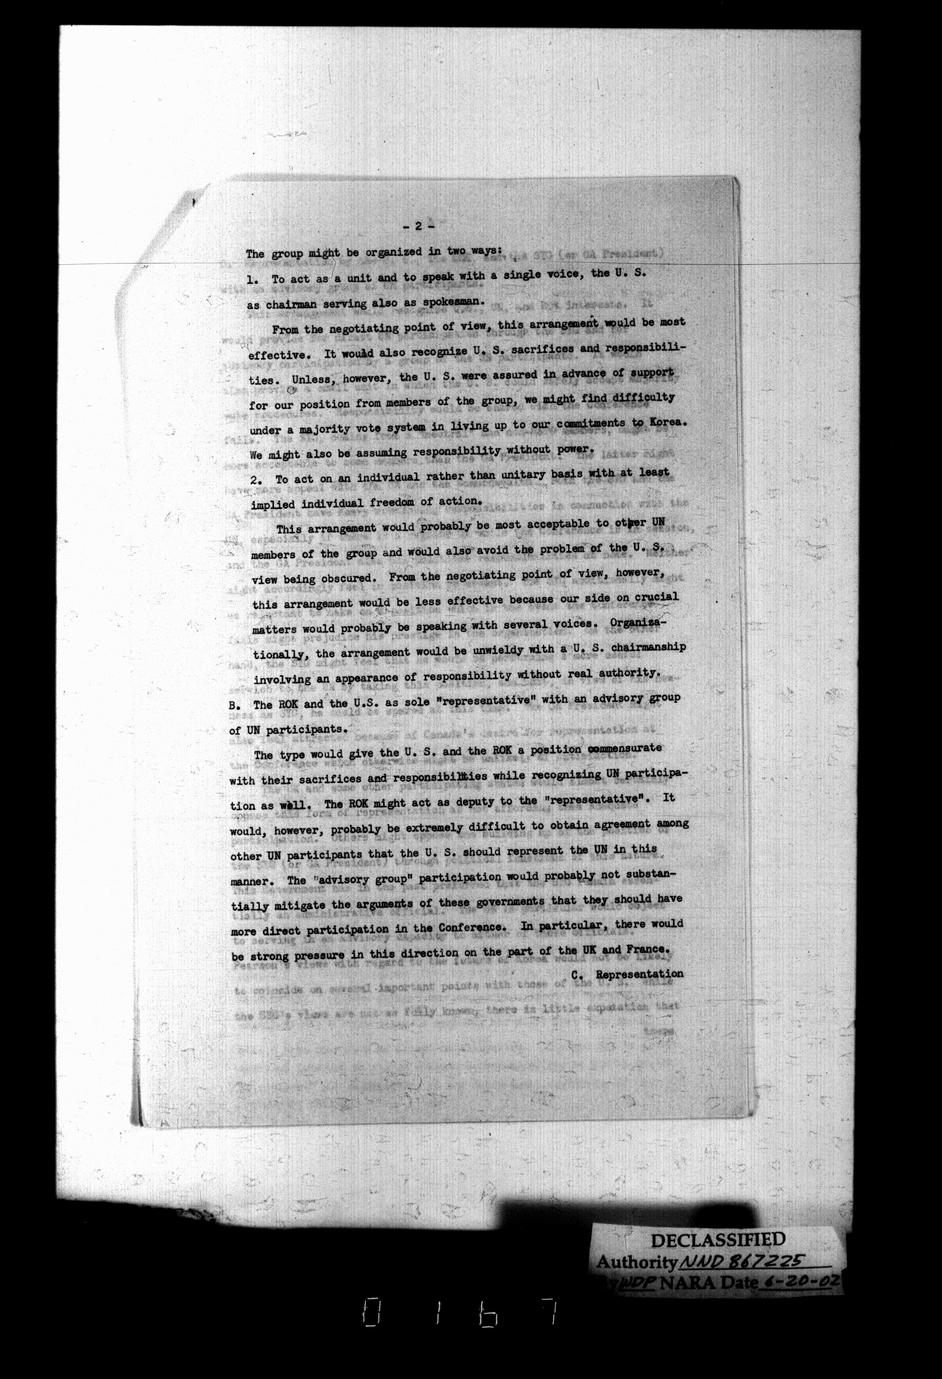 - 2 -
The group might be organized in two ways:
1. To act as a unit and to speak with a single voice, the U. S.
as chairman serving also as spokesman.
From the negotiating point of view, this arrangement would be most
effective. It would also recognize U. S. sacrifices and responsibili-
ties. Unless, however, the U. S. were assured in advance of support
for our position from members of the group, we might find difficulty
under a majority vote system in living up to our commitments to Korea.
We might also be assuming responsibility without power.
2. To act on an individual rather than unitary basis with at least
implied individual freedom of action.
This arrangement would probably be most acceptable to other UN
members of the group and would also avoid the problem of the U. S.
view being obscured. From the negotiating point of view, however,
this arrangement would be less effective because our side on crucial
matters would probably be speaking with several voices. Organiza-
tionally, the arrangement would be unwieldy with a U. S. chairmanship
involving an appearance of responsibility without real authority.
B. The ROK and the U.S. as sole "representative" with an advisory group
of UN participants.
The type would give the U. S. and the ROK a position commensurate
with their sacrifices and responsibilities while recognizing UN participa-
tion as well. The ROK might act as deputy to the "representative". It
would, however, probably be extremely difficult to obtain agreement among
other UN participants that the U. S. should represent the UN in this
manner. The "advisory group" participation would probably not substan-
tially mitigate the arguments of these governments that they should have
more direct participation in the Conference. In particular, there would
be strong pressure in this direction on the part of the UK and France.
C. Representation
DECLASSIFIED
Authority NND 867225
By WDP NARA Date 6-20-02
0167